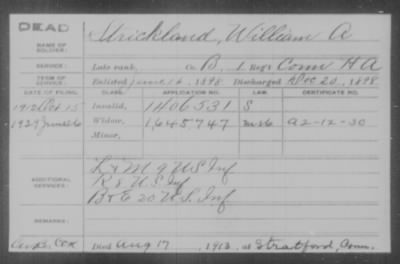 DEAD
NAME OF SOLDIER: Strickland, William A
SERVICE: Late rank, Co. B, 1 Reg't Conn H A
TERM OF SERVICE: Enlisted June 14, 1898 Discharged Dec 20, 1898
DATE OF FILING. CLASS. APPLICATION NO. LAW. CERTIFICATE NO.
1912 Oct 15 Invalid, 1406531 S
1929 Widow, 1,645,747 A2-12-30
Minor,
L & M 9 U S Inf
ADDITIONAL SERVICES: R 8 U S Inf
B & E 20 U.S. Inf
REMARKS:
Died Aug 17, 1913, at Stratford, Conn.